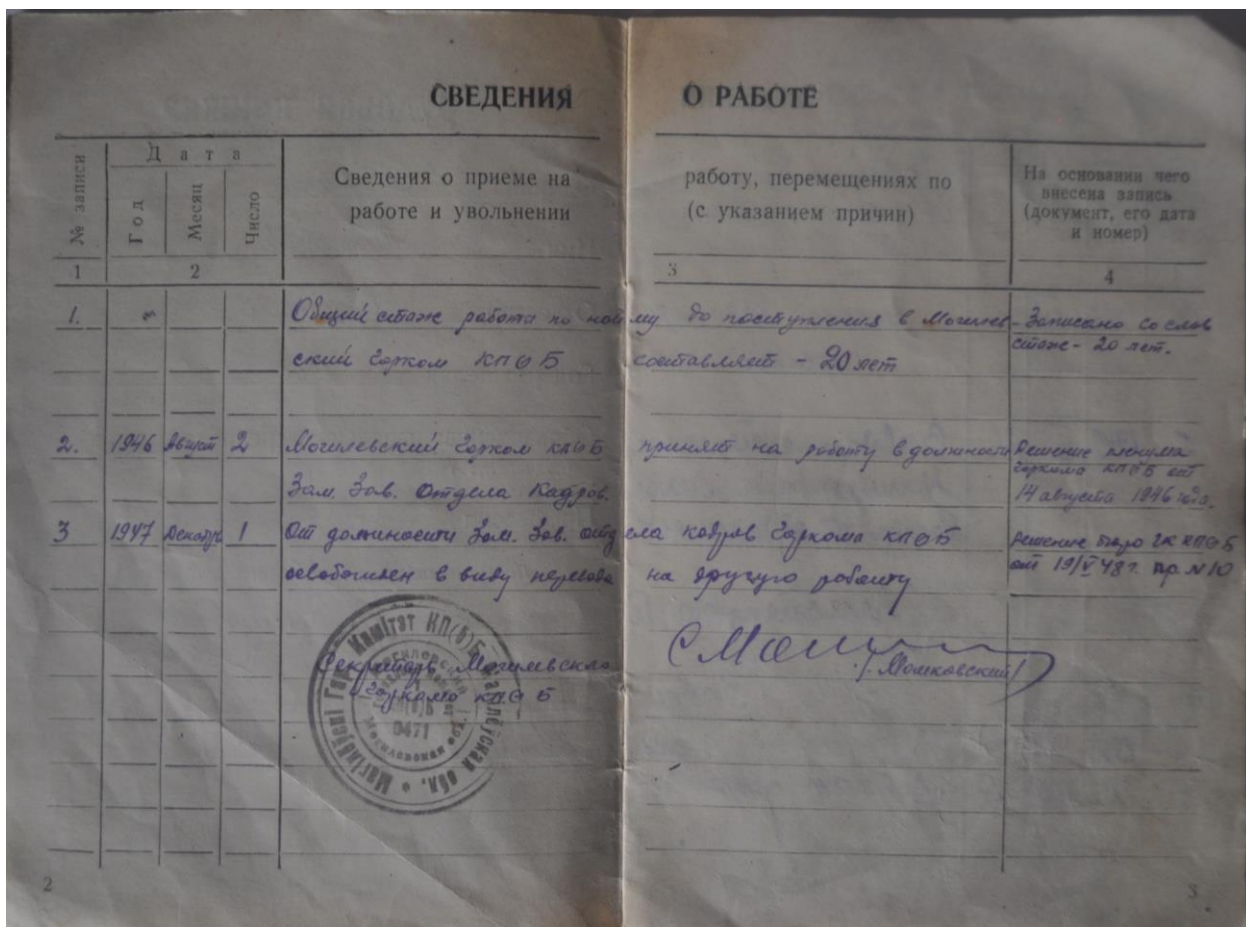 СВЕДЕНИЯ О РАБОТЕ
№ записи
Дата
Год
Месяц
Число
Сведения о приеме на работу, перемещениях по
работе и увольнении (с указанием причин)
На основании чего
внесена запись
(документ, его дата
и номер)
1 2 3 4
1. Общий стаж работы по найму до поступления в Могилев-
ский Горком КП(б)Б составляет - 20 лет
Записано со слов
стаж - 20 лет.
2. 1946 Август 2 Могилевский Горком КП(б)Б принят на работу в должности
Зам. Зав. Отдела Кадров.
Решение пленума
Горкома КП(б)Б от
14 августа 1946 года.
3 1947 Декабрь 1 От должности Зам. Зав. отдела кадров Горкома КП(б)Б
освобожден в виду перевода на другую работу
Решение бюро ГК КП(б)Б
от 19/V 48 г. пр. № 10
Секретарь Могилевского
Горкома КП(б)Б
/Мошковский/
Магілеўскі Гар. Камітэт КП(б)Б Магілеўская обл.
Могилевская обл.
0471
2
3